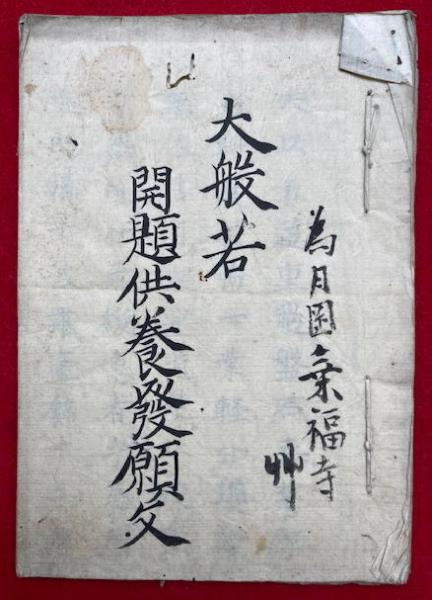 為月岡乗福寺
艸
大般若
開題供養發願文